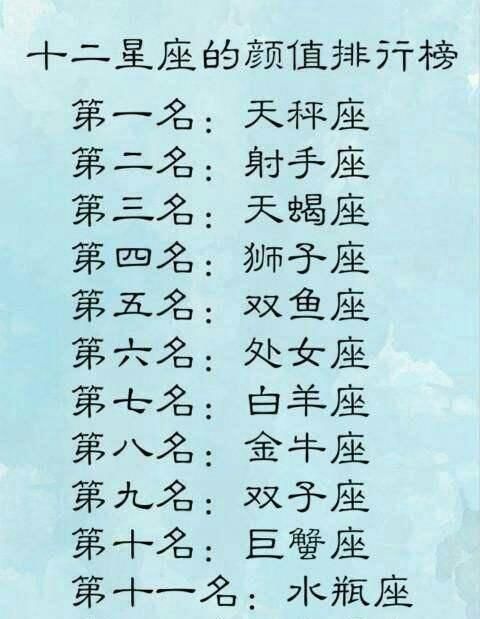 十二星座的颜值排行榜
第一名：天秤座
第二名：射手座
第三名：天蝎座
第四名：狮子座
第五名：双鱼座
第六名：处女座
第七名：白羊座
第八名：金牛座
第九名：双子座
第十名：巨蟹座
第十一名：水瓶座